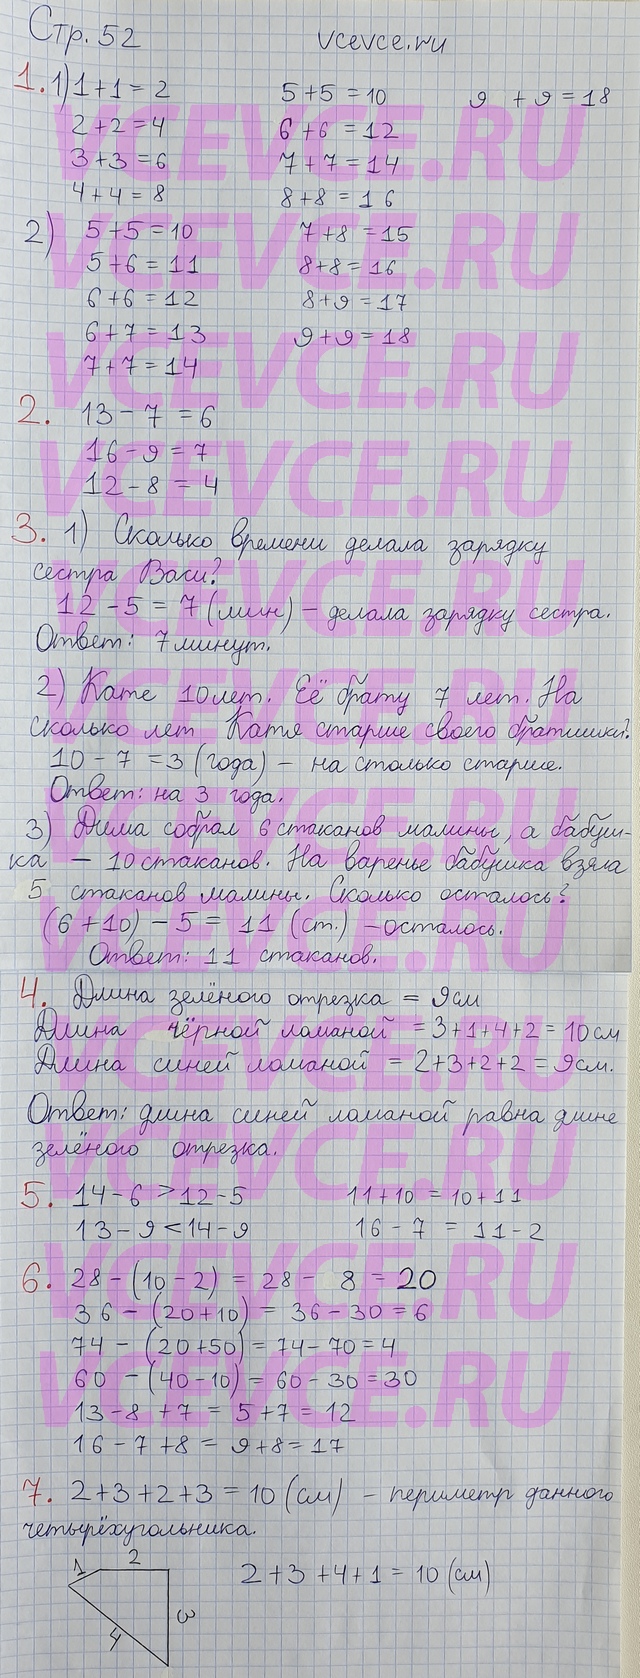 Стр. 52 vcevce.ru
1. 1) 1+1=2 5+5=10 9 +9=18
2+2=4 6+6=12
3+3=6 7+7=14
4+4=8 8+8=16
2) 5+5=10 7+8=15
5+6=11 8+8=16
6+6=12 8+9=17
6+7=13 9+9=18
7+7=14
2. 13-7=6
16-9=7
12-8=4
3. 1) Сколько времени делала зарядку
сестра Васи?
12-5=7(мин) - делала зарядку сестра.
Ответ: 7 минут.
2) Кате 10 лет. Её брату 7 лет. На
сколько лет Катя старше своего братишки?
10-7=3 (года) - на столько старше.
Ответ: на 3 года.
3) Дима собрал 6 стаканов малины, а бабуш-
ка - 10 стаканов. На варенье бабушка взяла
5 стаканов малины. Сколько осталось?
(6+10)-5=11 (ст.) - осталось.
Ответ: 11 стаканов.
4. Длина зелёного отрезка = 9см
Длина чёрной ломаной =3+1+4+2=10см
Длина синей ломаной =2+3+2+2=9см.
Ответ: длина синей ломаной равна длине
зелёного отрезка.
5. 14-6>12-5 11+10=10+11
13-9<14-9 16-7=11-2
6. 28-(10-2)=28-8=20
36-(20+10)=36-30=6
74-(20+50)=74-70=4
60-(40-10)=60-30=30
13-8+7=5+7=12
16-7+8=9+8=17
7. 2+3+2+3=10(см) - периметр данного
четырёхугольника.
1 2 2+3+4+1=10(см)
4 3
VCEVCE.RU
VCEVCE.RU
VCEVCE.RU
VCEVCE.RU
VCEVCE.RU
VCEVCE.RU
VCEVCE.RU
VCEVCE.RU
VCEVCE.RU
VCEVCE.RU
VCEVCE.RU
VCEVCE.RU